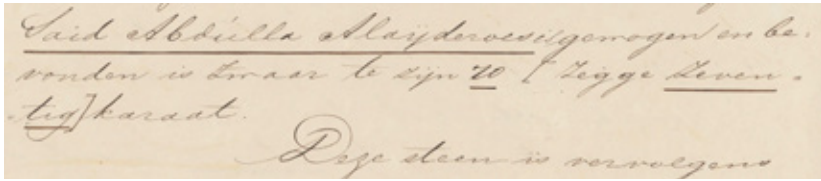 Said Abdúlla Alaÿderoes is gewogen en be-
vonden is zwaar te zijn 70 [zegge zeven-
-tig] karaat.
Deze steen is vervolgens